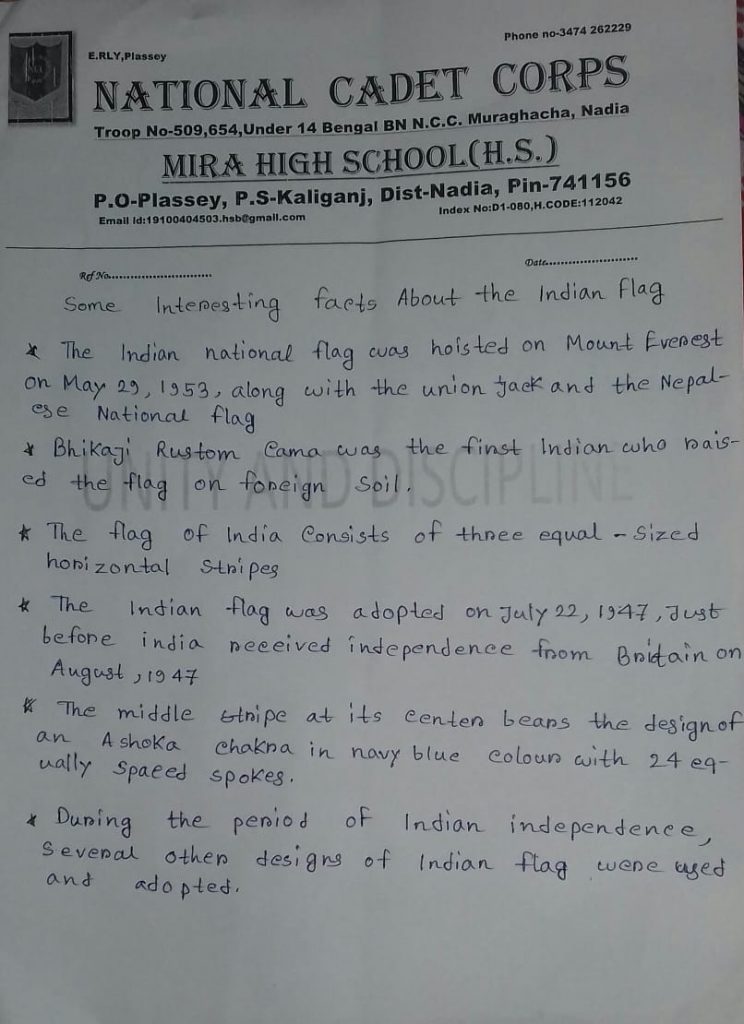 Phone no-3474 262229
E.RLY,Plassey
NATIONAL CADET CORPS
Troop No-509,654,Under 14 Bengal BN N.C.C. Muraghacha, Nadia
MIRA HIGH SCHOOL(H.S.)
P.O-Plassey, P.S-Kaliganj, Dist-Nadia, Pin-741156
Email Id:19100404503.hsb@gmail.com
Index No:D1-080,H.CODE:112042
Ref No..........................
Date.......................
Some Interesting facts About the Indian Flag
* The Indian national flag was hoisted on Mount Everest
on May 29, 1953, along with the union Jack and the Nepal-
ese National flag
* Bhikaji Rustom Cama was the first Indian who rais-
ed the flag on foreign Soil.
UNITY AND DISCIPLINE
* The flag of India Consists of three equal - Sized
horizontal Stripes
* The Indian flag was adopted on July 22, 1947, Just
before india received independence from Britain on
August, 1947
* The middle stripe at its center bears the design of
an Ashoka chakra in navy blue colour with 24 eq-
ually spaced spokes.
* During the period of Indian independence,
Several other designs of Indian flag were used
and adopted.